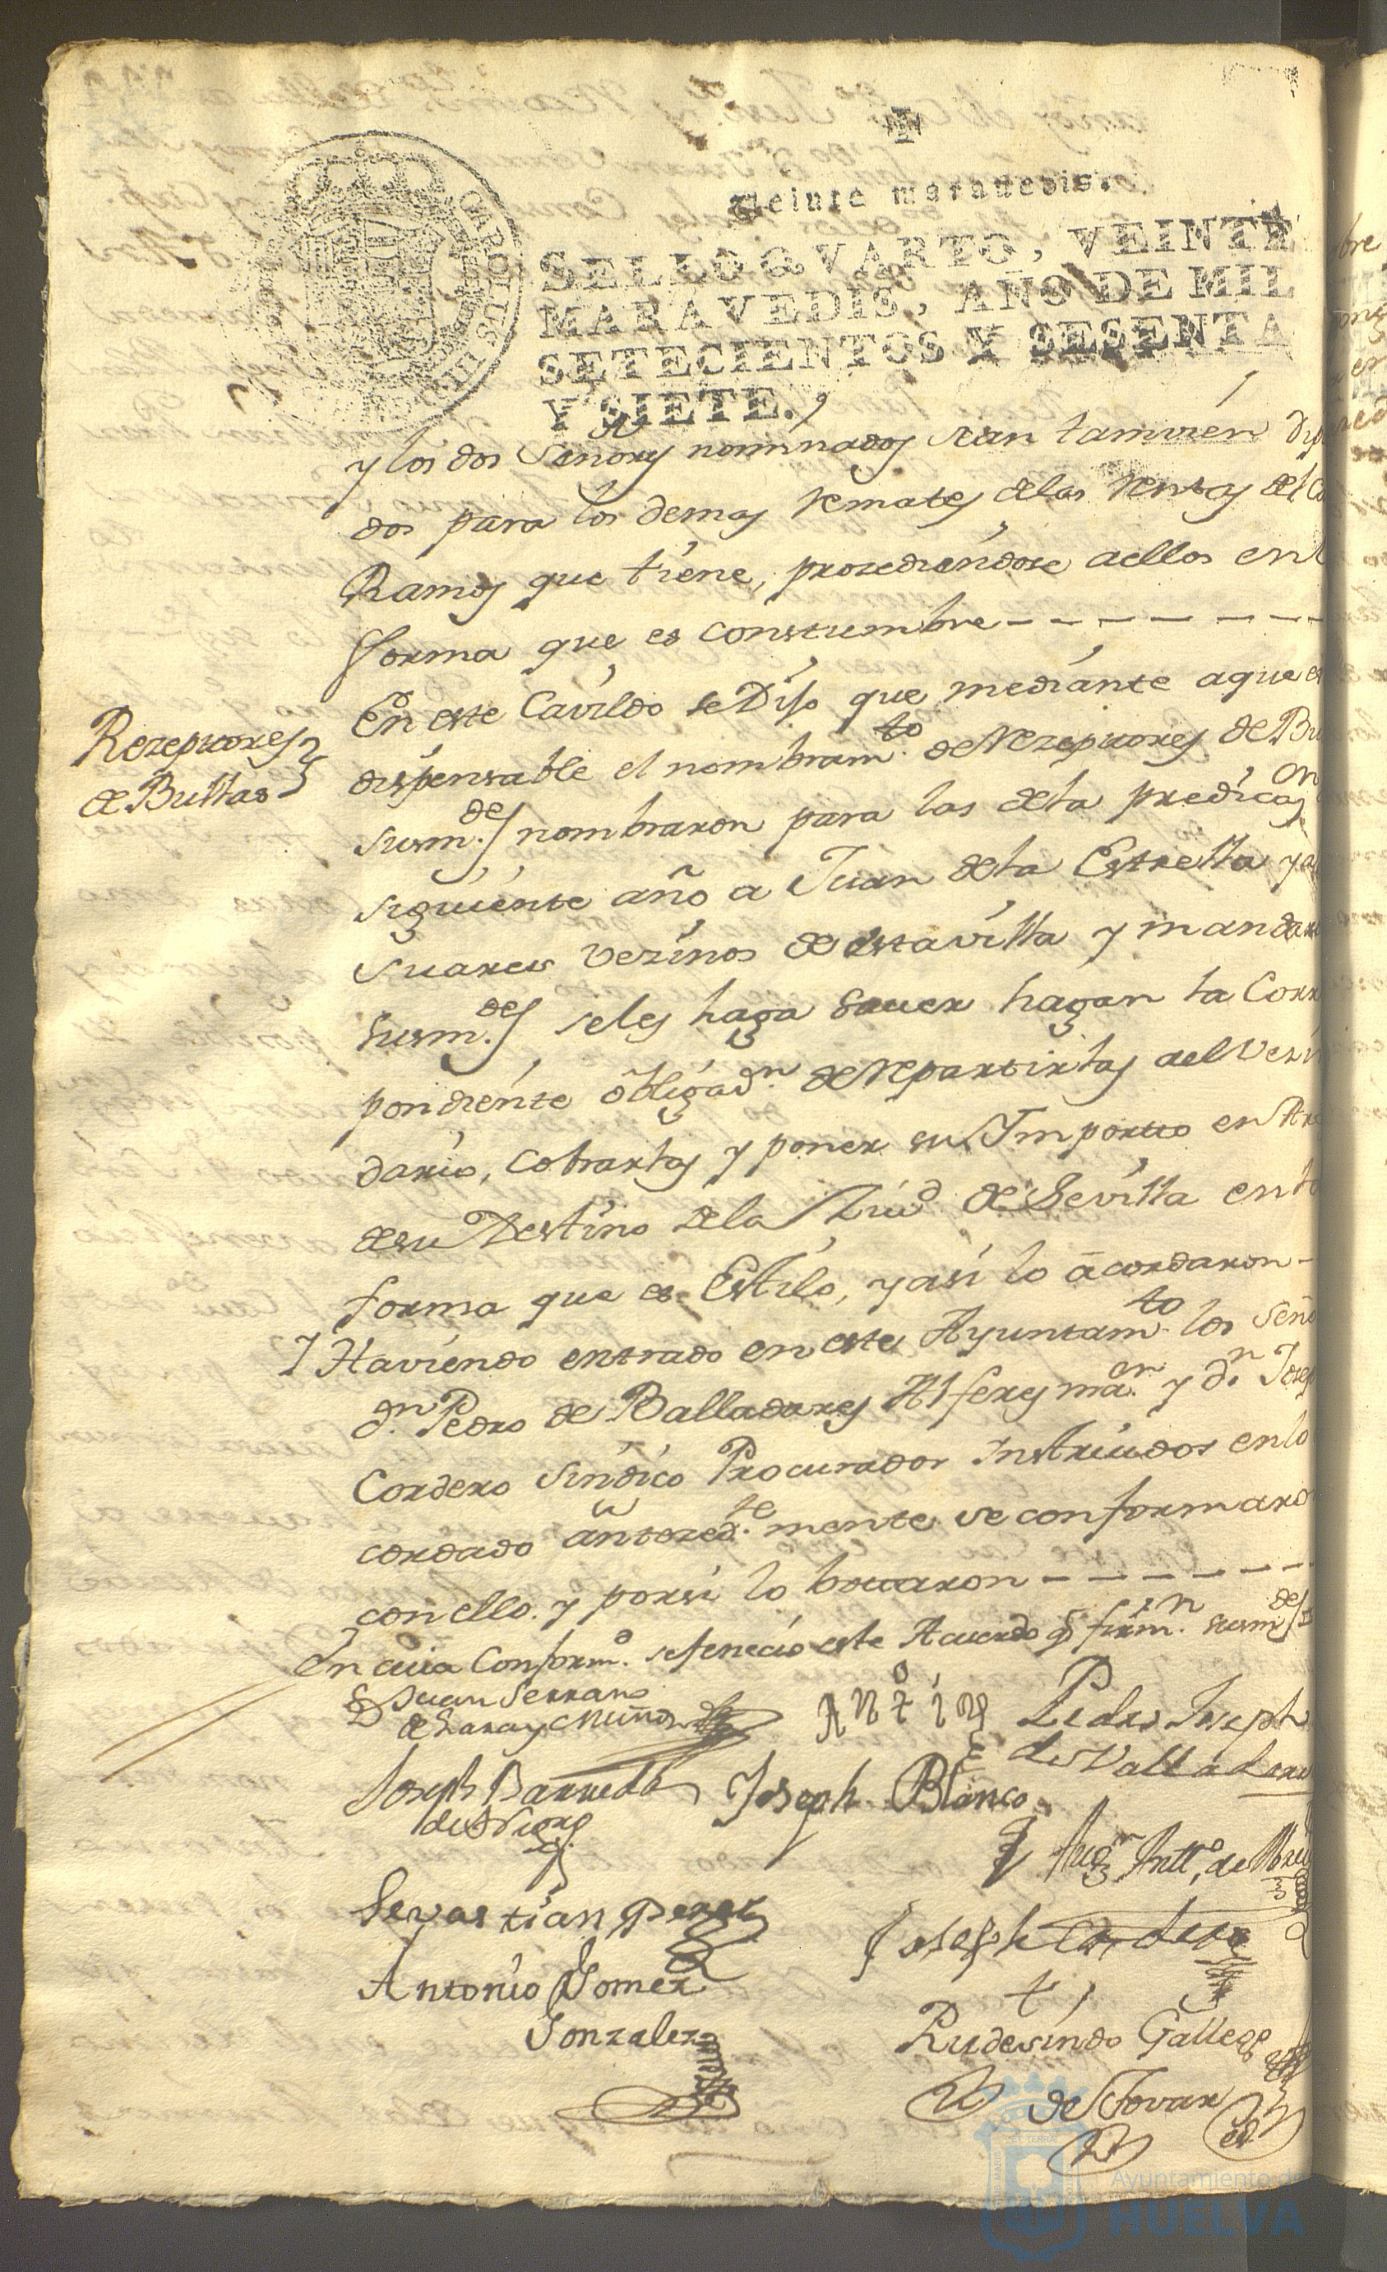 Veinte maravedis.
SELLO QVARTO, VEINTE
MARAVEDIS, AÑO DE MIL
SETECIENTOS Y SESENTA
Y SIETE.
CAROLUS III
y los dos Señores nominados sean tamvien dip
dos para los demas remates delas rentas del
Ramos que tiene, prozediendose aellos en
forma que es constumbre
Rezeptores
de Bullas
En este Cavildo se Dijo que mediante aque
dispensable el nombram.to de Rezeptores de Bu
susm.des nombraron para las dela predicaz.on
siguiente año a Juan dela Estrella y
Suares vezinos de esta villa y mandar
susm.des seles haga sauer hagan la Corr
pondiente obligaz.n de repartirlas al Vezin
dario, cobrarlas y poner su Importto en
desu Destino dela Ziud de Sevilla en
forma que es Estilo, y asi lo acordaron
Y Haviendo entrado en este Ayuntam.to los Seño
d.n Pedro de Balladares Alferes ma.or y d.n Josep
Cordero Sindico Procurador Instruidos enlo
cordado antezed.te mente se conformaro
con ello. y porsi lo bottaron
En cuia Conform.d sefenecio este Acuerdo q firm.n susm.des
D Juan Serrano
de Garay Muñoz
Antõ
Pedro Joseph
de Valladares
Joseph Barreda
Joseph Blanco
Aug.n Antt.o de
Sevastian Perez
Joseph Cordero
Antonio Gomez
Gonzalez
Rudesindo Gallego
de Tovar
Ayuntamiento de
HUELVA